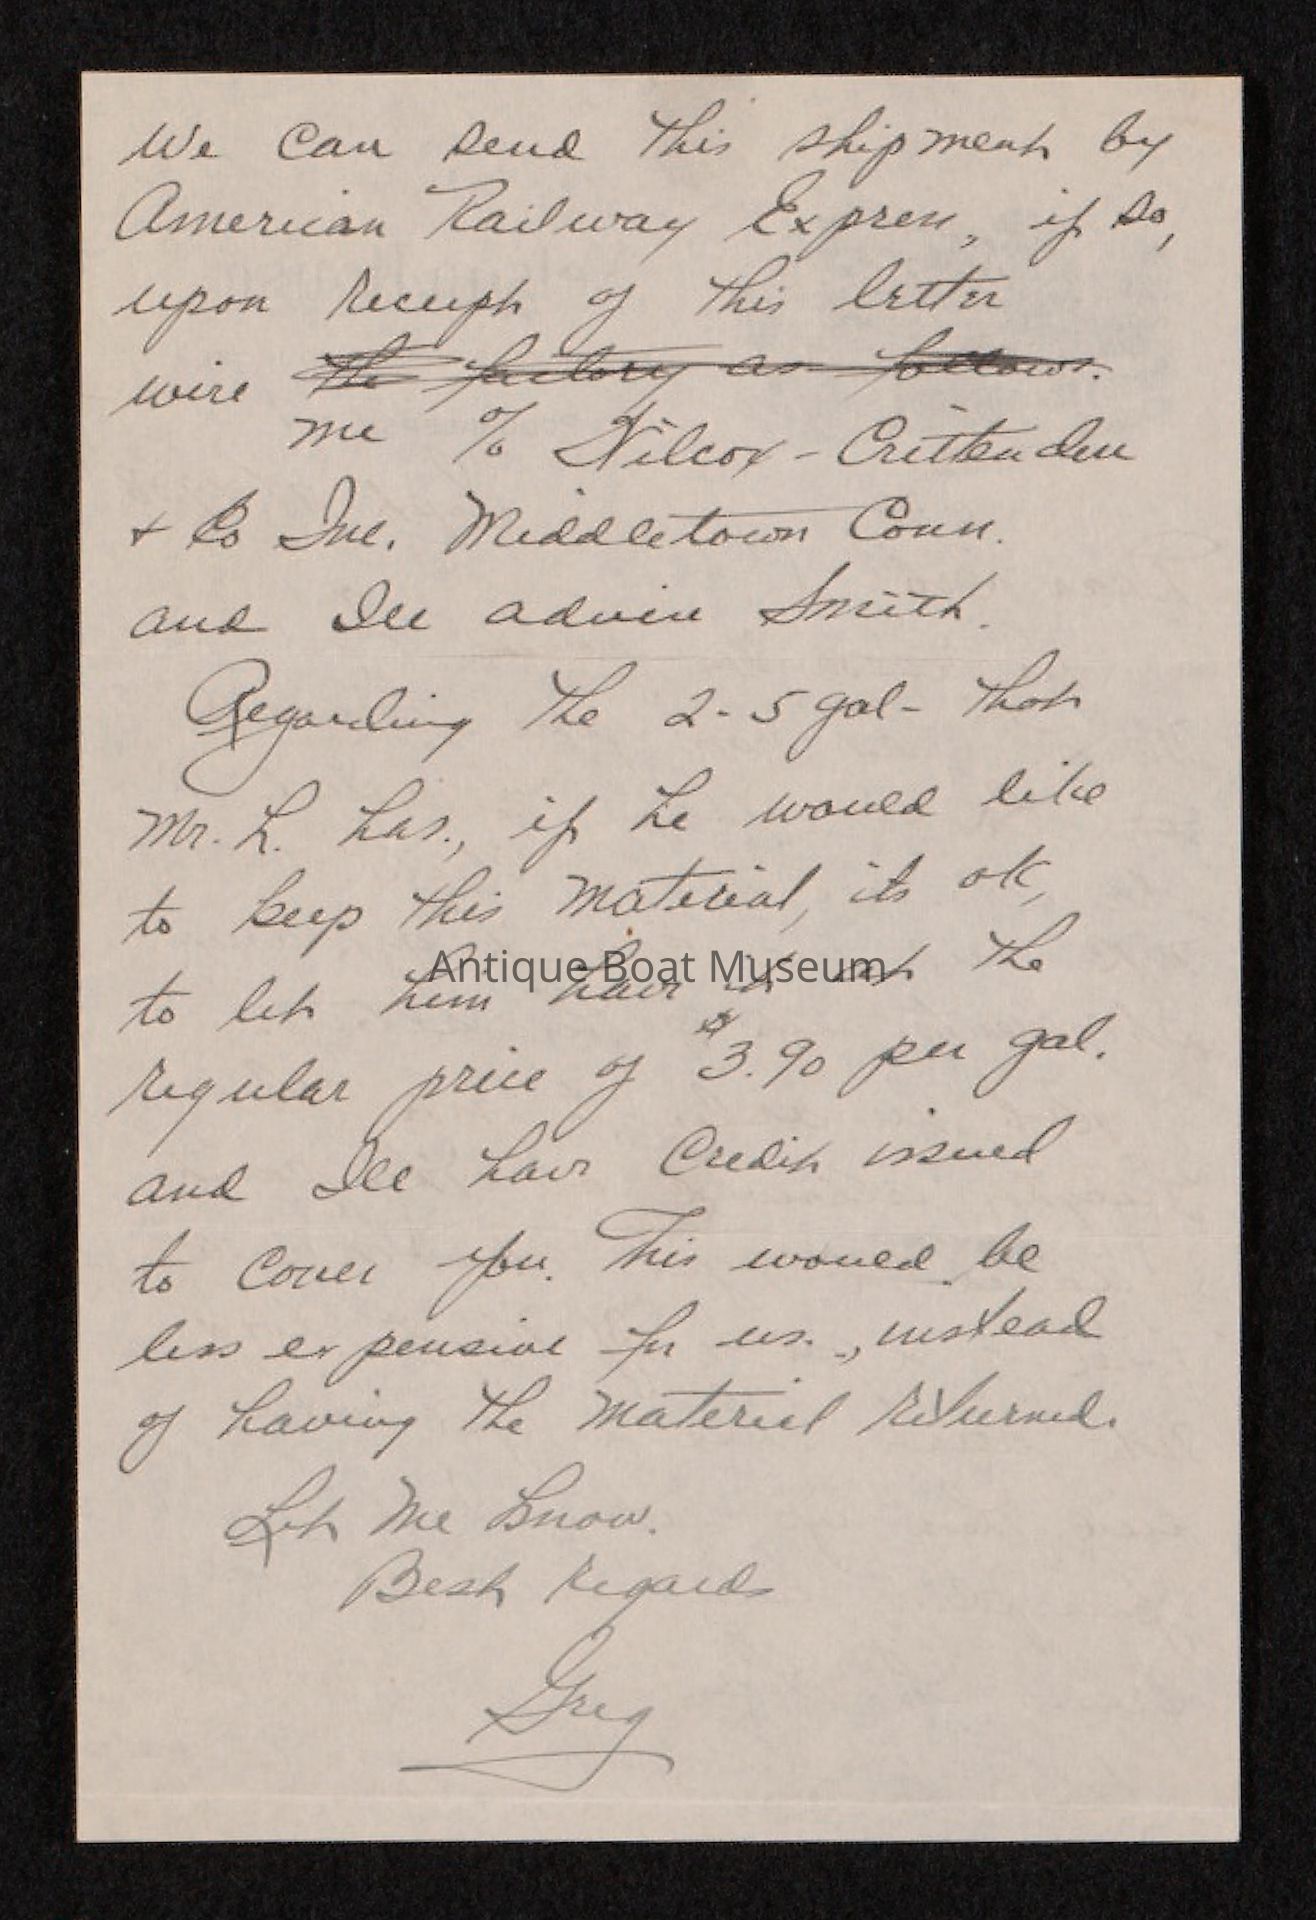 We can send this shipment by
American Railway Express, if so,
upon receipt of this letter
wire the factory as follows.
me % Wilcox-Crittenden
+ Co Inc. Middletown Conn.
and Ill advise Smith.
Regarding the 2-5 gal- that
Mr. L. has., if he would like
to keep this material, its ok,
to let him have it at the
Antique Boat Museum
regular price of $3.90 per gal.
and Ill have Credit issued
to cover you. This would be
less expensive for us., instead
of having the material returned.
Let me know.
Best regards
Greg